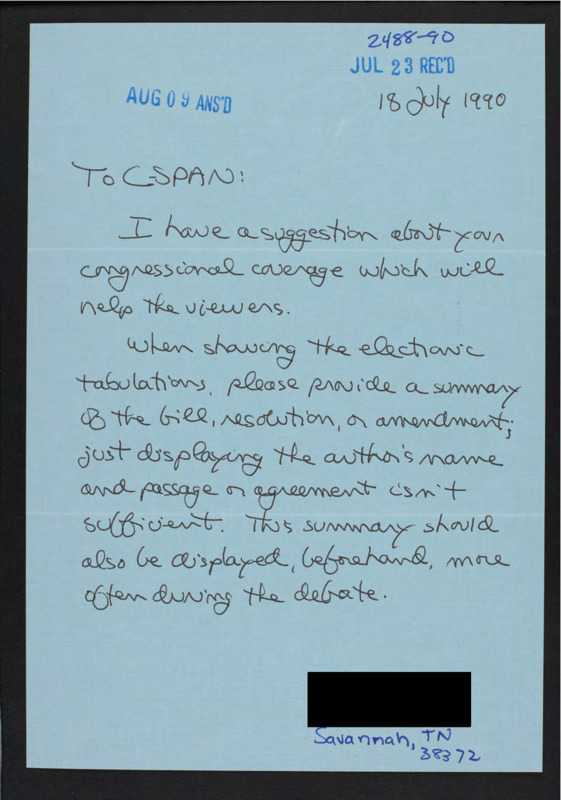 2488-90
JUL 23 REC'D
AUG 09 ANS'D
18 July 1990
To C-SPAN:
I have a suggestion about your
congressional coverage which will
help the viewers.
When showing the electronic
tabulations, please provide a summary
of the bill, resolution, or amendment;
just displaying the author's name
and passage or agreement isn't
sufficient. This summary should
also be displayed, beforehand, more
often during the debate.
Savannah, TN
38372